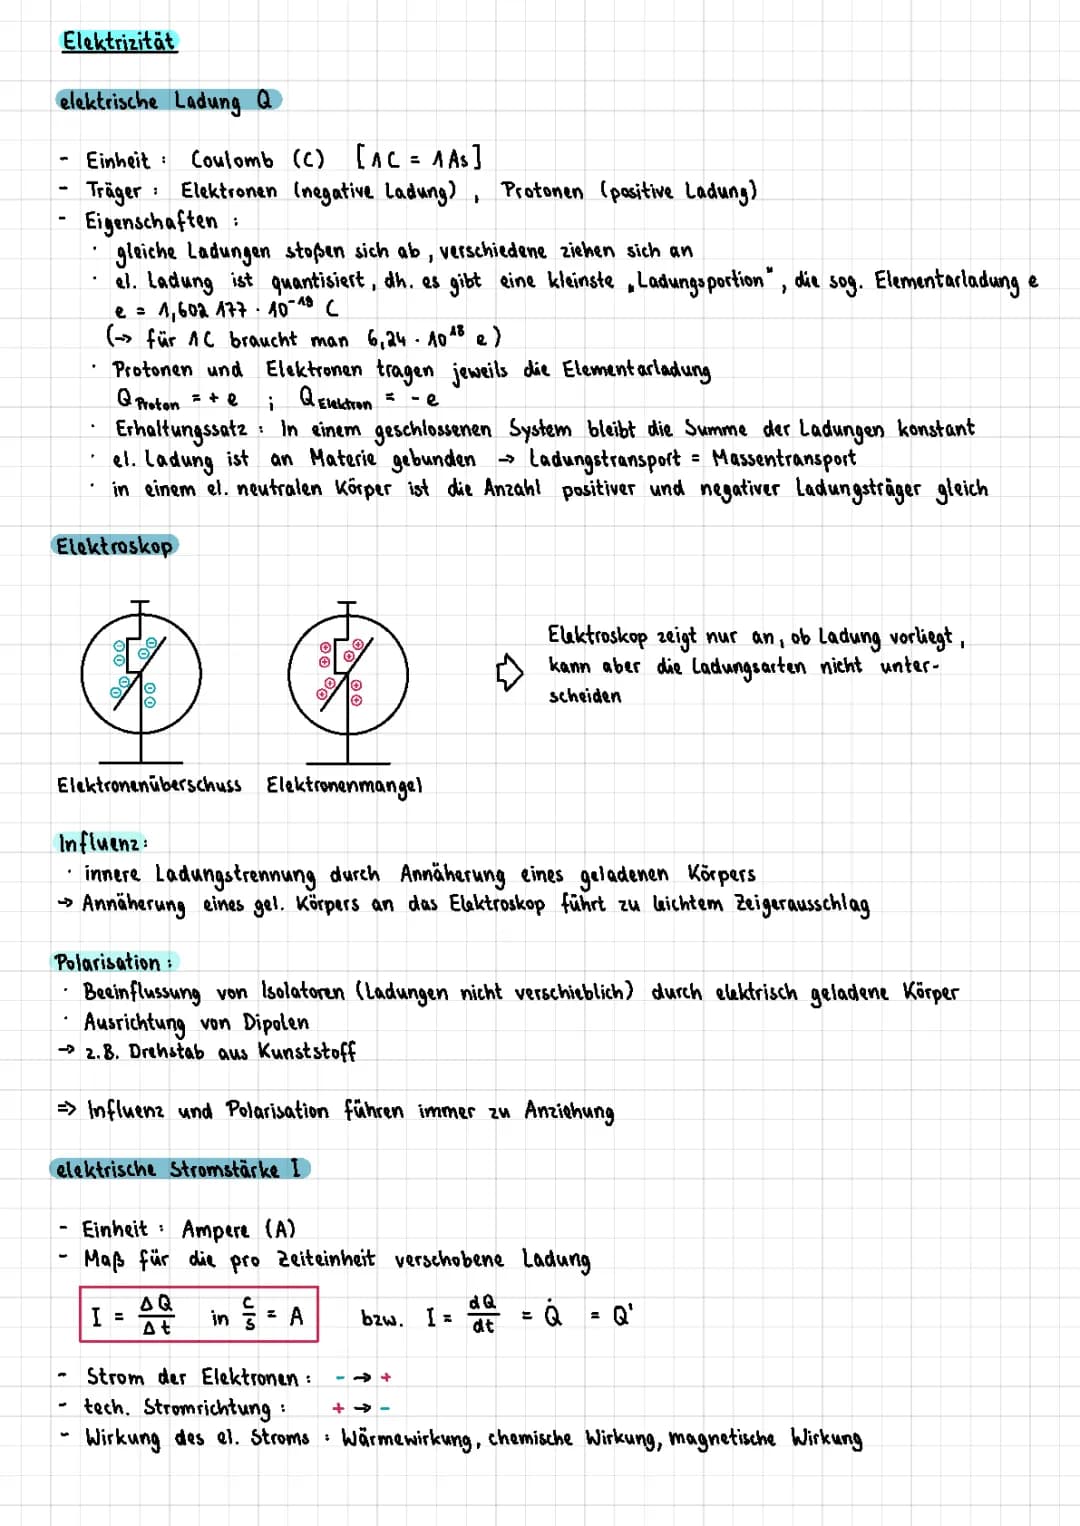 Elektrizität
elektrische Ladung Q
- Einheit : Coulomb (C) [1C = 1As]
- Träger : Elektronen (negative Ladung) , Protonen (positive Ladung)
- Eigenschaften :
· gleiche Ladungen stoßen sich ab , verschiedene ziehen sich an
· el. Ladung ist quantisiert , dh. es gibt eine kleinste „Ladungsportion" , die sog. Elementarladung e
e = 1,602 177 · 10⁻¹⁹ C
(→ für 1C braucht man 6,24 · 10¹⁸ e)
· Protonen und Elektronen tragen jeweils die Elementarladung
Q Proton = + e ; Q Elektron = - e
· Erhaltungssatz : In einem geschlossenen System bleibt die Summe der Ladungen konstant
· el. Ladung ist an Materie gebunden → Ladungstransport = Massentransport
· in einem el. neutralen Körper ist die Anzahl positiver und negativer Ladungsträger gleich
Elektroskop
Elektroskop zeigt nur an, ob Ladung vorliegt ,
⇨ kann aber die Ladungsarten nicht unter-
scheiden
Elektronenüberschuss Elektronenmangel
Influenz :
· innere Ladungstrennung durch Annäherung eines geladenen Körpers
→ Annäherung eines gel. Körpers an das Elektroskop führt zu leichtem Zeigerausschlag
Polarisation :
· Beeinflussung von Isolatoren (Ladungen nicht verschieblich) durch elektrisch geladene Körper
· Ausrichtung von Dipolen
→ z.B. Drehstab aus Kunststoff
⇒ Influenz und Polarisation führen immer zu Anziehung
elektrische Stromstärke I
- Einheit : Ampere (A)
- Maß für die pro Zeiteinheit verschobene Ladung
I = ΔQ/Δt in C/s = A bzw. I = dQ/dt = Q̇ = Q'
- Strom der Elektronen : - → +
- tech. Stromrichtung : + → -
- Wirkung des el. Stroms : Wärmewirkung, chemische Wirkung, magnetische Wirkung